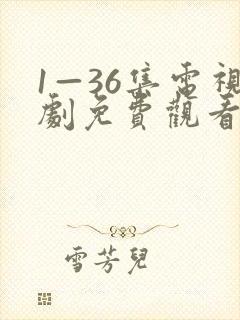 1—36集電視
劇免費觀看
雪芳兒